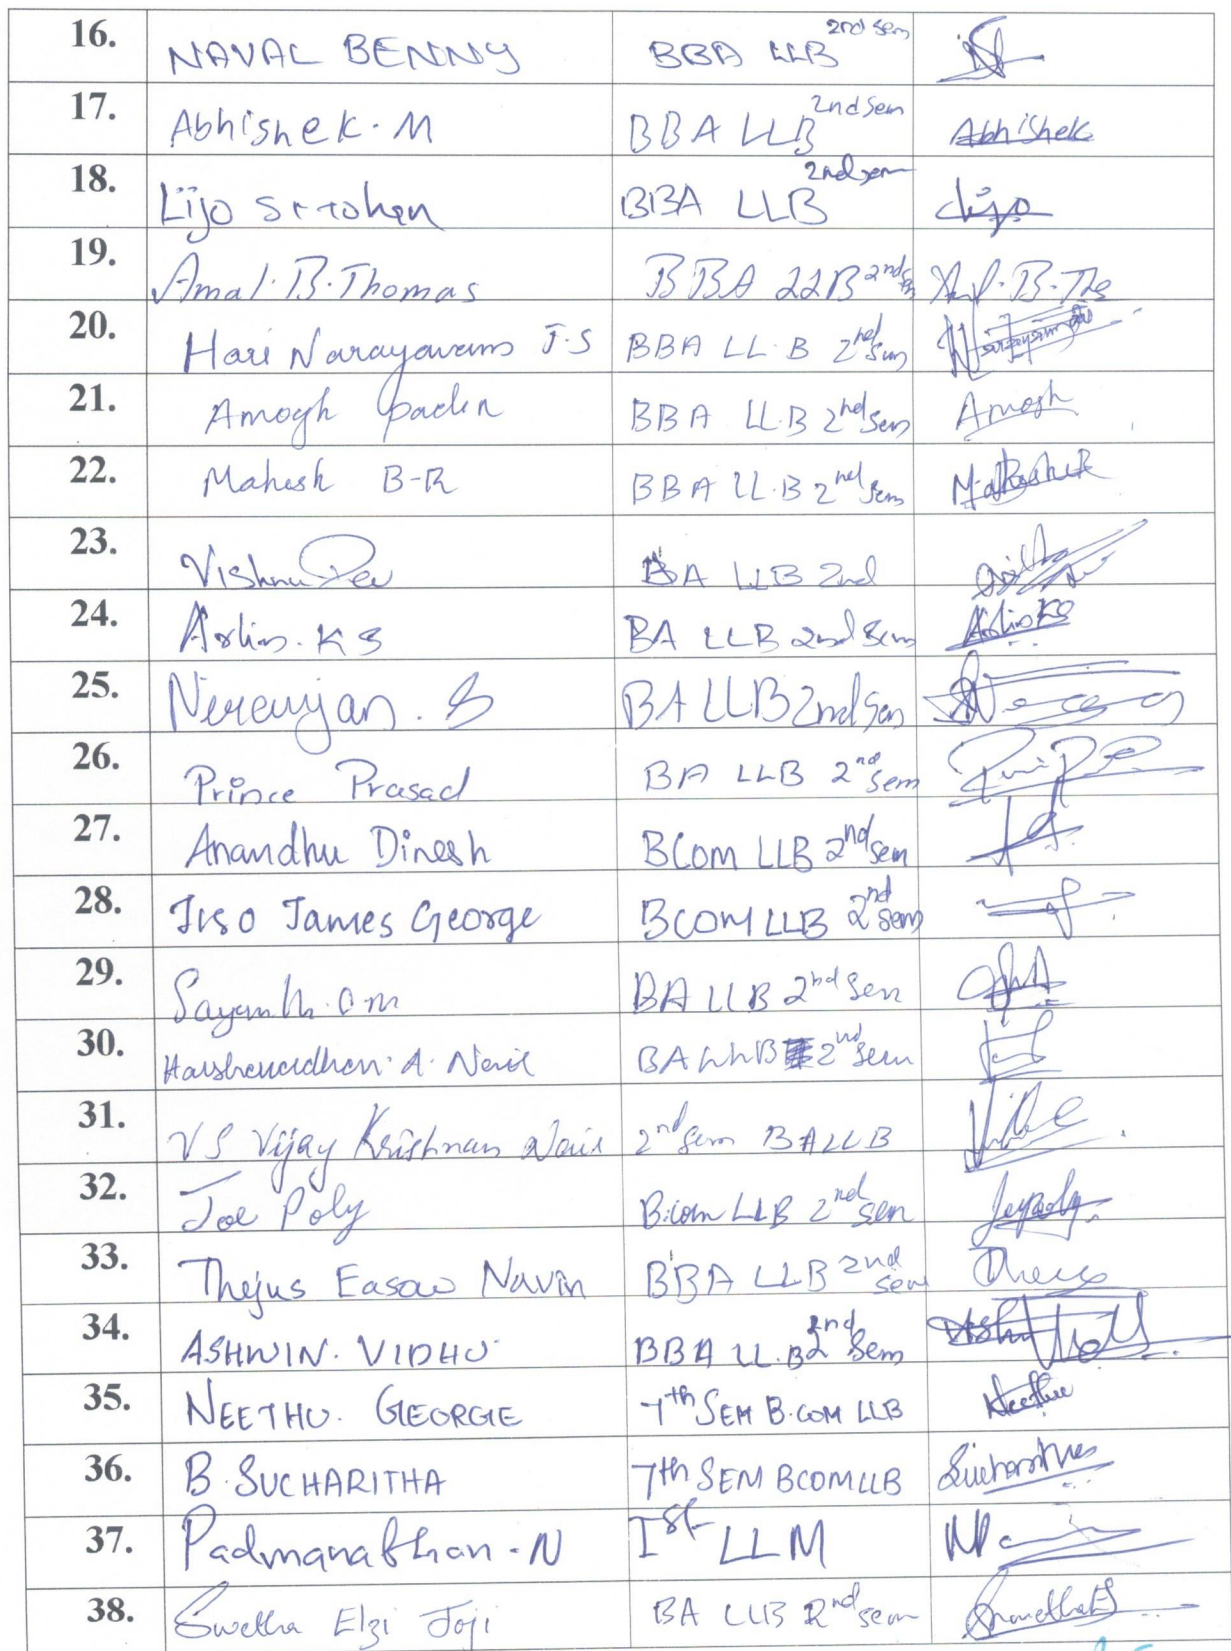 16. NAVAL BENNY BBA LLB 2nd sem
17. Abhishek. M BBA LLB 2nd sem Abhishek
18. Lijo BBA LLB 2nd sem Lijo
19. Amal. B. Thomas BBA LLB 2nd
20. Hari J.S BBA LL.B 2nd Sem
21. Amogh BBA LL.B 2nd Sem Amogh
22. Mahesh B-R BBA LL.B 2nd Sem
23. Vishnu Dev BA LLB 2nd
24. K S BA LLB 2nd Sem
25. BA LLB 2nd Sem
26. Prince Prasad BA LLB 2nd Sem
27. Anandhu Dinesh BCom LLB 2nd Sem
28. James George BCOM LLB 2nd Sem
29. BA LLB 2nd Sem
30. A. Nair BA LLB 2nd Sem
31. VS Vijay Krishnan Nair 2nd Sem BALLB
32. Joe Poly B.com LLB 2nd Sem
33. Thejus Easow Navin BBA LLB 2nd sem
34. ASHWIN. VIDHU BBA LL.B 2nd Sem
35. NEETHU. GEORGE 7th SEM B.COM LLB Neethu
36. B. SUCHARITHA 7th SEM BCOMLLB Sucharitha
37. Padmanabhan - N Ist LLM
38. Swetha Elzi Joji BA LLB 2nd sem